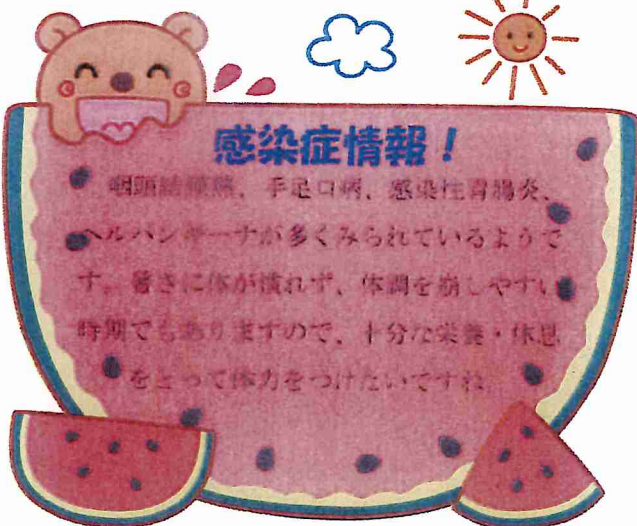 感染症情報!
咽頭結膜熱、手足口病、感染性胃腸炎、
ヘルパンギーナが多くみられているようで
す。暑さに体が慣れず、体調を崩しやすい
時期でもありますので、十分な栄養・休息
をとって体力をつけたいですね